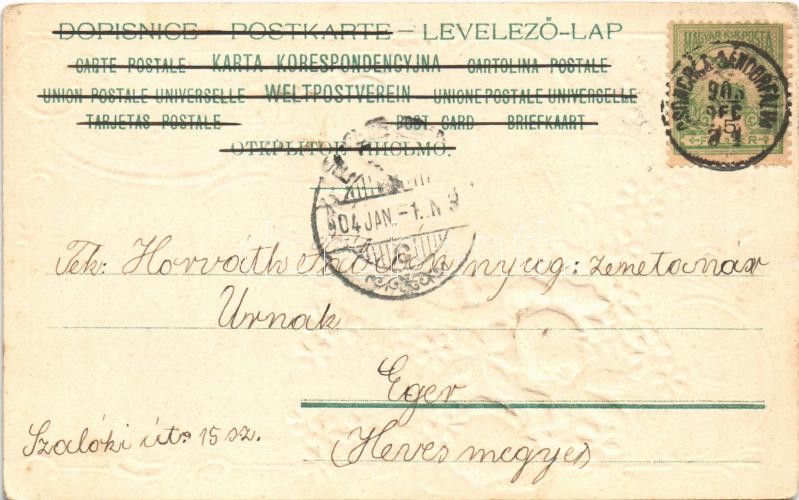 DOPISNICE – POSTKARTE – LEVELEZŐ-LAP
CARTE POSTALE KARTA KORESPONDENCYJNA CARTOLINA POSTALE
UNION POSTALE UNIVERSELLE WELTPOSTVEREIN UNIONE POSTALE UNIVERSELLE
TARJETAS POSTALE POST CARD BRIEFKAART
MAGYAR KIR. POSTA
903
DEC
04 JAN. –1. N
Tek: Horváth nyug: zenetanár
Urnak
Eger
Szalóki út. 15 sz.
(Heves megye)